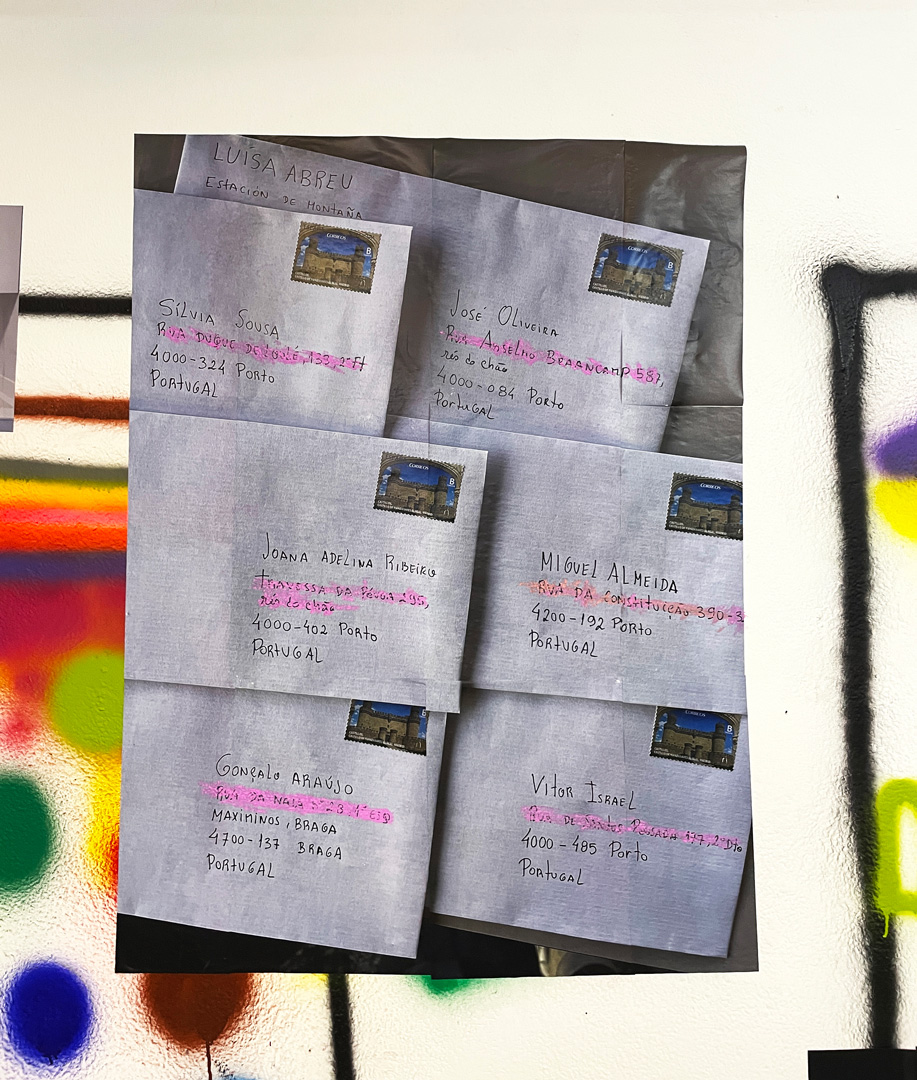 LUÍSA ABREU
ESTACIÓN DE MONTAÑA
CORREOS
B
SÍLVIA SOUSA
RUA DUQUE DE LOULÉ, 133, 2º FT
4000-324 PORTO
PORTUGAL
CORREOS
B
JOSÉ OLIVEIRA
RUA ANSELMO BRAANCAMP 587,
rés do chão
4000-084 PORTO
PORTUGAL
CORREOS
B
JOANA ADELINA RIBEIRO
TRAVESSA DA PÓVOA 295,
rés do chão
4000-402 PORTO
PORTUGAL
CORREOS
MIGUEL ALMEIDA
RUA DA CONSTITUIÇÃO 390-3
4200-192 PORTO
PORTUGAL
B
GONÇALO ARAÚJO
RUA DA NAIA Nº 28 1º ESQ
MAXIMINOS, BRAGA
4700-137 BRAGA
PORTUGAL
CORREOS
B
VITOR ISRAEL
RUA DE SANTOS POUSADA 177, 2º DTO
4000-485 PORTO
PORTUGAL